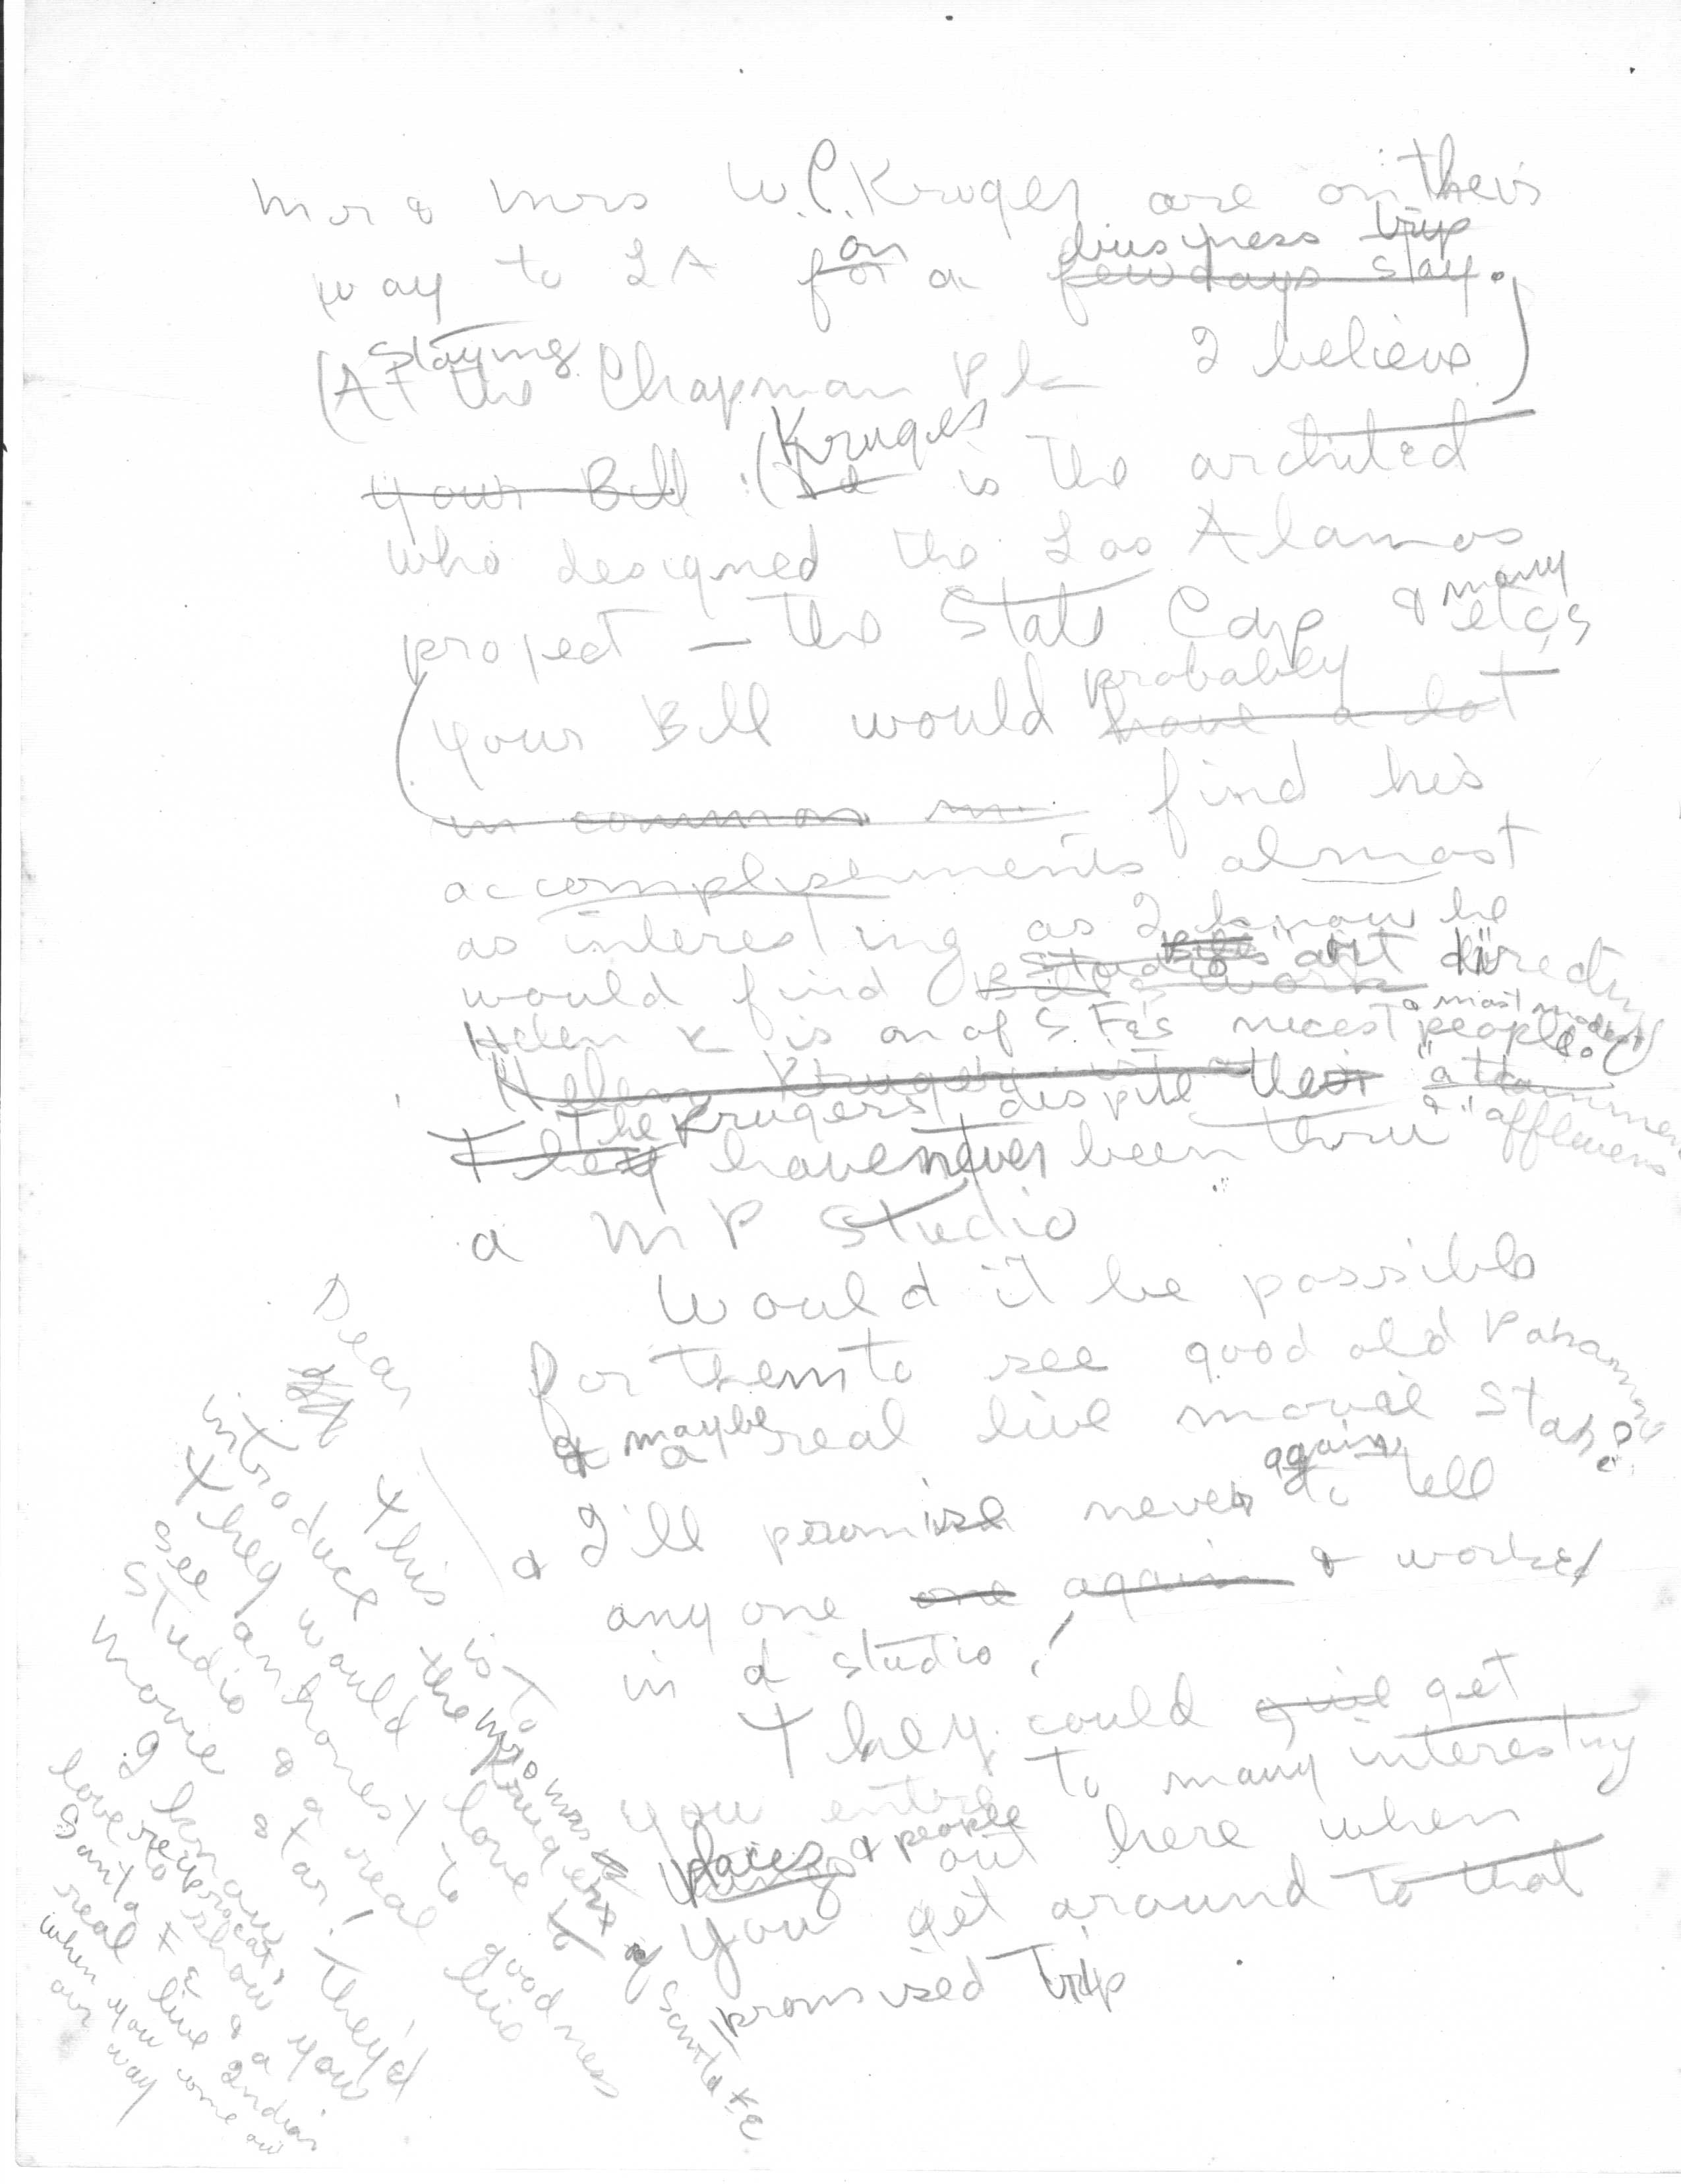 Mr & Mrs W.C. Kruger are on their
way to LA for on a few days stay. business trip
(At the staying Chapman Pk I believe)
your Bill (He Kruger is the architect
who designed the Los Alamos
project — the State Cap & many etcs
(your Bill would have a lot probably
in common in find his
accomplishments almost
as interesting as I know he
would find Bill's work Studio "art" directing
Helen K is on of S Fe's nicest & most modest people.
Helen Kruger
They The Krugers, despite their "attainments" & "affluence"
have never been thru
a M P Studio
Would it be possible
for them to see good old Paramount
& maybe a real live movie star?
& I'll promise never again to tell
anyone one again & worked
in a studio!
They could give get
you entree to many interesting
places & people out here when
you get around to that
promised trip
Dear
this is to
introduce the Krugers of Santa Fe
They would love to
see an honest to goodness
studio & a real live
movie star! They'd
I know
love to reciprocate & show you
Santa Fe & a
real live Indian
when you come our
way